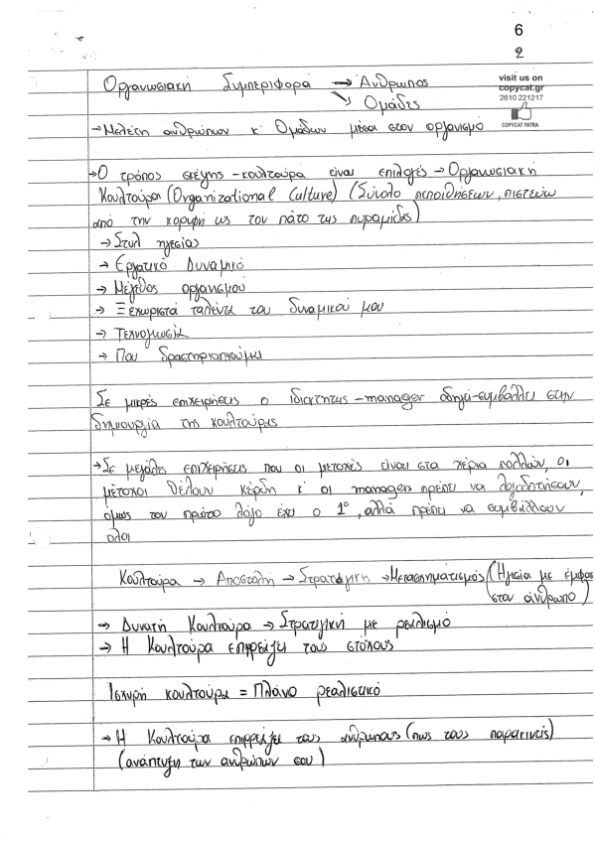 6
2
visit us on
copycat.gr
2610 221217
COPYCAT PATRA
Οργανωσιακή Συμπεριφορά → Άνθρωπος
↘ Ομάδες
→ Μελέτη ανθρώπων κ' Ομάδων μέσα στον οργανισμό
→ Ο τρόπος σκέψης - κουλτούρα είναι επιλογές → Οργανωσιακή
Κουλτούρα (Organizational Culture) (Σύνολο πεποιθήσεων, πιστεύω
από την κορυφή ως τον πάτο της πυραμίδας)
→ Στυλ ηγεσίας
→ Εργατικό Δυναμικό
→ Μέγεθος οργανισμού
→ Ξεχωριστά ταλέντα του δυναμικού μου
→ Τεχνογνωσία
→ Που δραστηριοποιούμαι
Σε μικρές επιχειρήσεις ο ιδιοκτήτης - manager οδηγεί - συμβάλλει στην
δημιουργία της κουλτούρας
→ Σε μεγάλες επιχειρήσεις που οι μετοχές είναι στα χέρια πολλών, οι
μέτοχοι θέλουν κέρδη κ' οι managers πρέπει να λογοδοτήσουν,
όμως τον πρώτο λόγο έχει ο 1°, αλλά πρέπει να συμβάλλουν
όλοι
Κουλτούρα → Αποστολή → Στρατηγική → Μετασχηματισμός (Ηγεσία με έμφαση
στον άνθρωπο)
→ Δυνατή Κουλτούρα → Στρατηγική με ρεαλισμό
→ Η Κουλτούρα επηρρεάζει τους στόχους
Ισχυρή κουλτούρα = Πλάνο ρεαλιστικό
→ Η Κουλτούρα επηρρεάζει τους ανθρώπους (πως τους παρακινείς)
(ανάπτυξη των ανθρώπων σου)